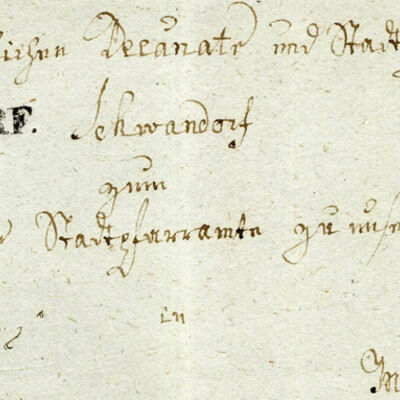 Decanate und Stadt
RF. Schwandorf
zum
Stadtpfarramte zu
in